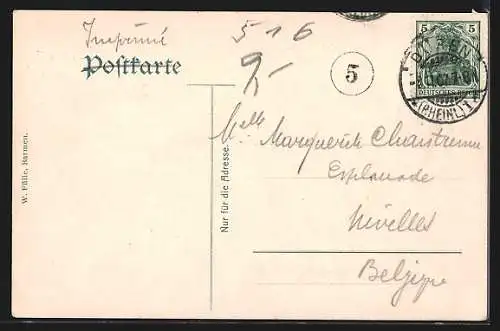 Imprimé
516
Postkarte
2,-
5
5 5
DEUTSCHES REICH
DÜREN
(RHEINL) 1
W. Fülle, Barmen.
Nur für die Adresse.
Melle Marguerite
Esplanade
Nivelles
Belgique